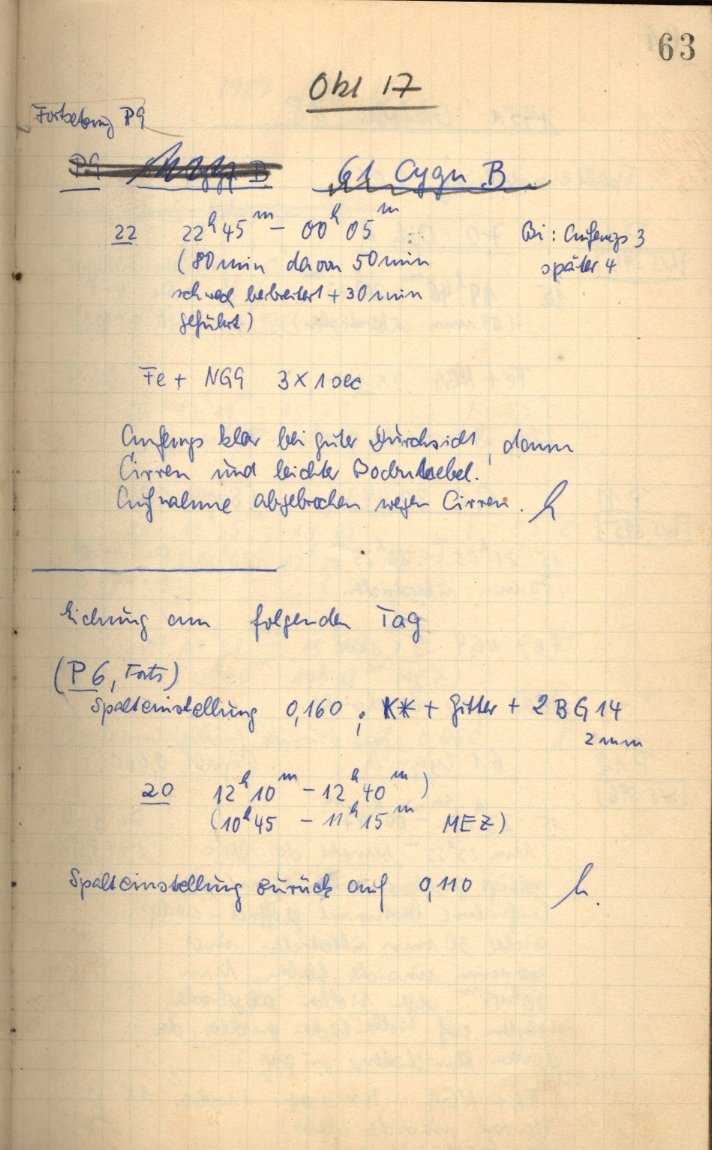 63
Okt 17
Fortsetzung P9
P9 61 Cygn B
22 22h 45m – 00h 05m Bi: Anfangs 3
(80 min davon 50 min später 4
schwach verbreitert + 30 min
geführt)
Fe + NGG 3 x 1 sec
Anfangs klar bei guter Durchsicht, dann
Cirren und leichter Bodennebel.
Aufnahme abgebrochen wegen Cirren.
Eichung am folgenden Tag
(P6, Forts)
Spalteinstellung 0,160, + Gitter + 2 BG 14
2mm
20 12h 10m – 12h 40m)
(10h 45 – 11h 15m MEZ)
Spalteinstellung zurück auf 0,110